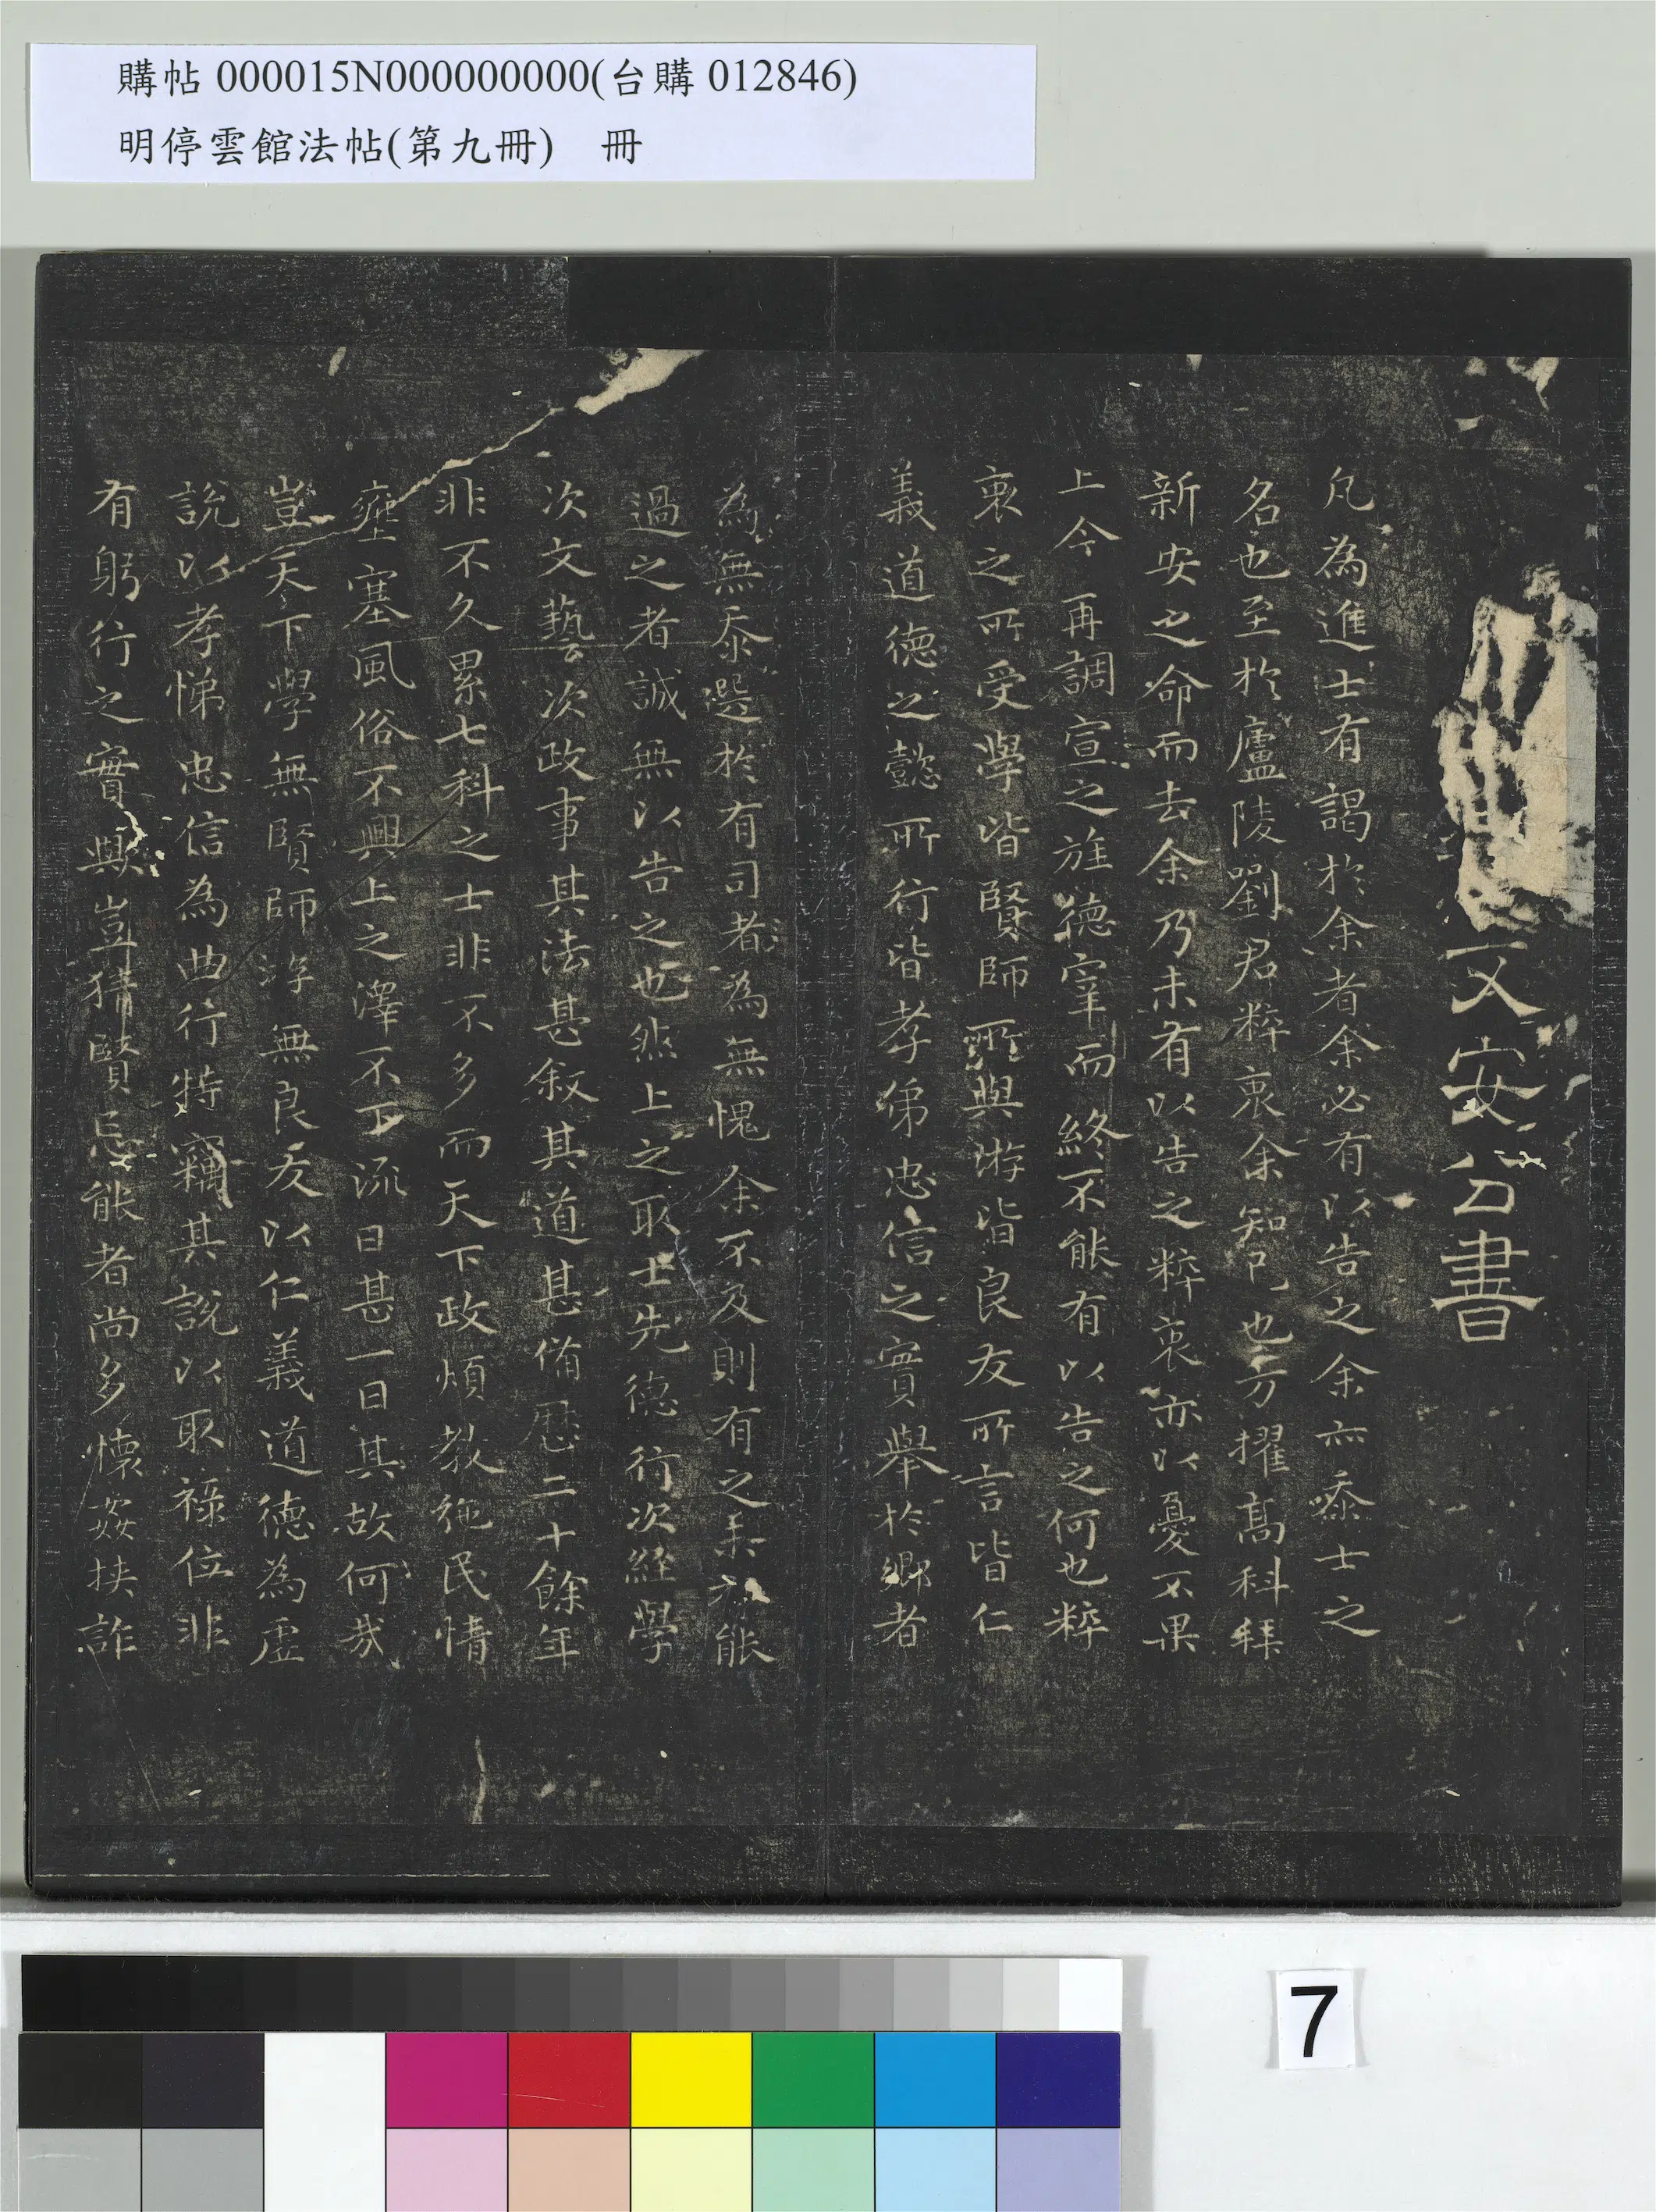 購帖 000015N000000000(台購 012846)
明停雲館法帖(第九冊)　冊
文安公書
凡為進士有謁於余者余必有以告之余亦忝士之
名也至於廬陵劉君粹衷余知已也方擢髙科拜
新安之命而去余乃未有以告之粹衷亦以憂不果
上今再調宣之旌德宰而終不能有以告之何也粹
衷之所受學皆賢師所與游皆良友所言皆仁
義道德之懿所行皆孝弟忠信之實舉於鄉者
為無忝選於有司者為無愧余不及則有之未能
過之者誠無以告之也然上之取士先德行次經學
次文藝次政事其法甚叙其道甚俻曆二十餘年
非不久累七科之士非不多而天下政煩教弛民情
壅塞風俗不興上之澤不下流日甚一日其故何哉
豈天下學無賢師游無良友以仁義道德為虛
說以孝悌忠信為曲行特竊其說以取禄位非
有躬行之實歟豈猜賢忌能者尚多懷姦挾詐
7